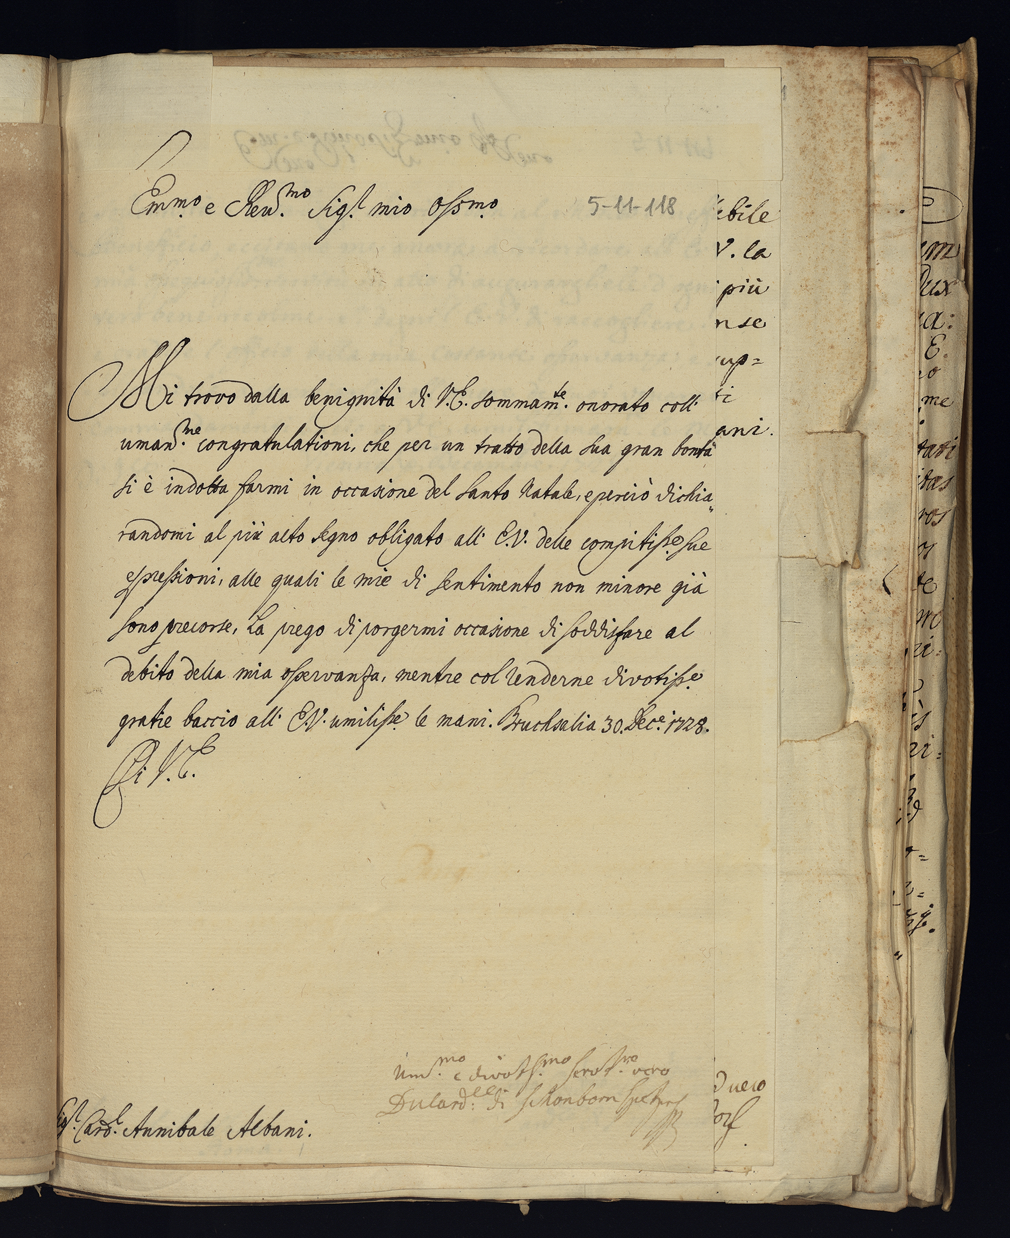 Em̅.mo e Rev.mo Sig.r mio Oss.mo
5-11-118
Mi trovo dalla benignità di V.E. sommam.te onorato coll'
uman.me congratulationi, che per un tratto della sua gran bontà
si è indotta farmi in occasione del Santo Natale, e perciò dichia„
randomi al più alto segno obligato all' E.V. delle compitiss.e sue
espressioni, alle quali le mie di sentimento non minore già
sono precorse, La prego di porgermi occasione di soddisfare al
debito della mia osservanza, mentre col renderne divotiss.e
gratie baccio all' E.V. umiliss.e le mani. Bruchsalia 30. Dec.e 1728.
Di V.E.
Um.mo e divotiss.mo serv.re vero
D. il Card.le di Schonborn
Sig.r Card.l Annibale Albani.
ebile
V. la
più
nse
up=
ti
ani.